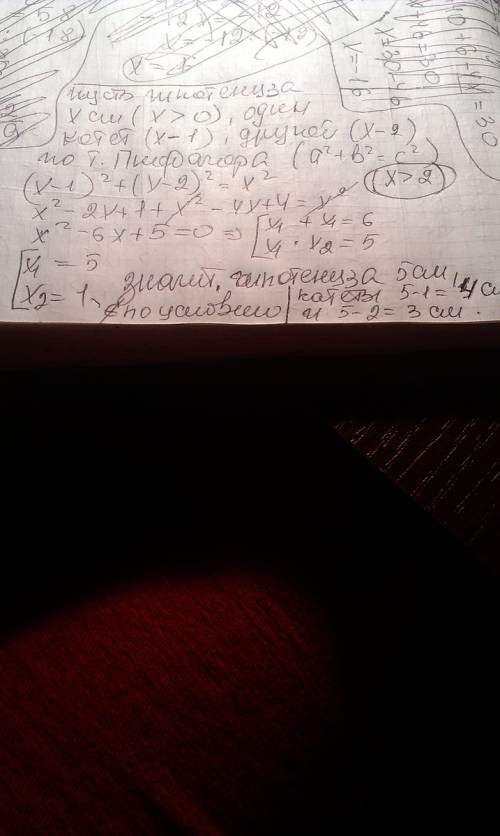 12x = -12
x = -12 : (-12)
x = 1
пусть гипотенуза
x см (x > 0), один
катет (x-1), другой (x-2)
по т. Пифагора (a² + b² = c²)
(x-1)² + (x-2)² = x² (x > 2)
x² - 2x + 1 + x² - 4x + 4 = x²
x² - 6x + 5 = 0 => [x₁ + x₁ = 6
x₁ · x₂ = 5
[x₁ = 5
x₂ = 1 - ∉ по условию
значит, гипотенуза 5 см,
катеты 5-1 = 4 см
и 5-2 = 3 см.
x = 16